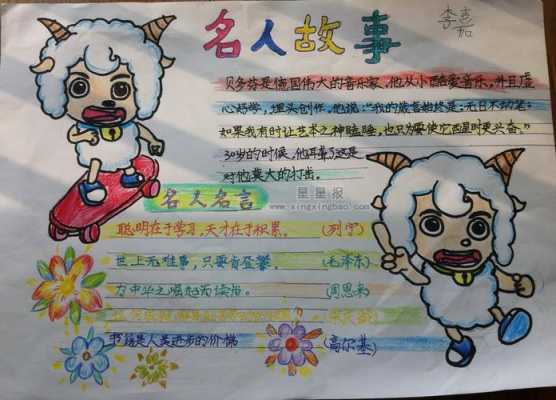 名人故事
李嘉
贝多芬是德国伟大的音乐家,他从小酷爱音乐,并且虚
心好学,埋头创作。他说:“我的箴言始终是:无日不动笔;
如果我有时让艺术之神瞌睡,也只为要使它醒时更兴奋。”
30岁的时候,他耳聋了这是
对他莫大的打击。
名人名言
星星报
www.xingxingbao.com
聪明在于学习,天才在于积累。(列宁)
世上无难事,只要肯登攀。(毛泽东)
为中华之崛起而读书。(周恩来)
书籍是人类进步的阶梯(高尔基)